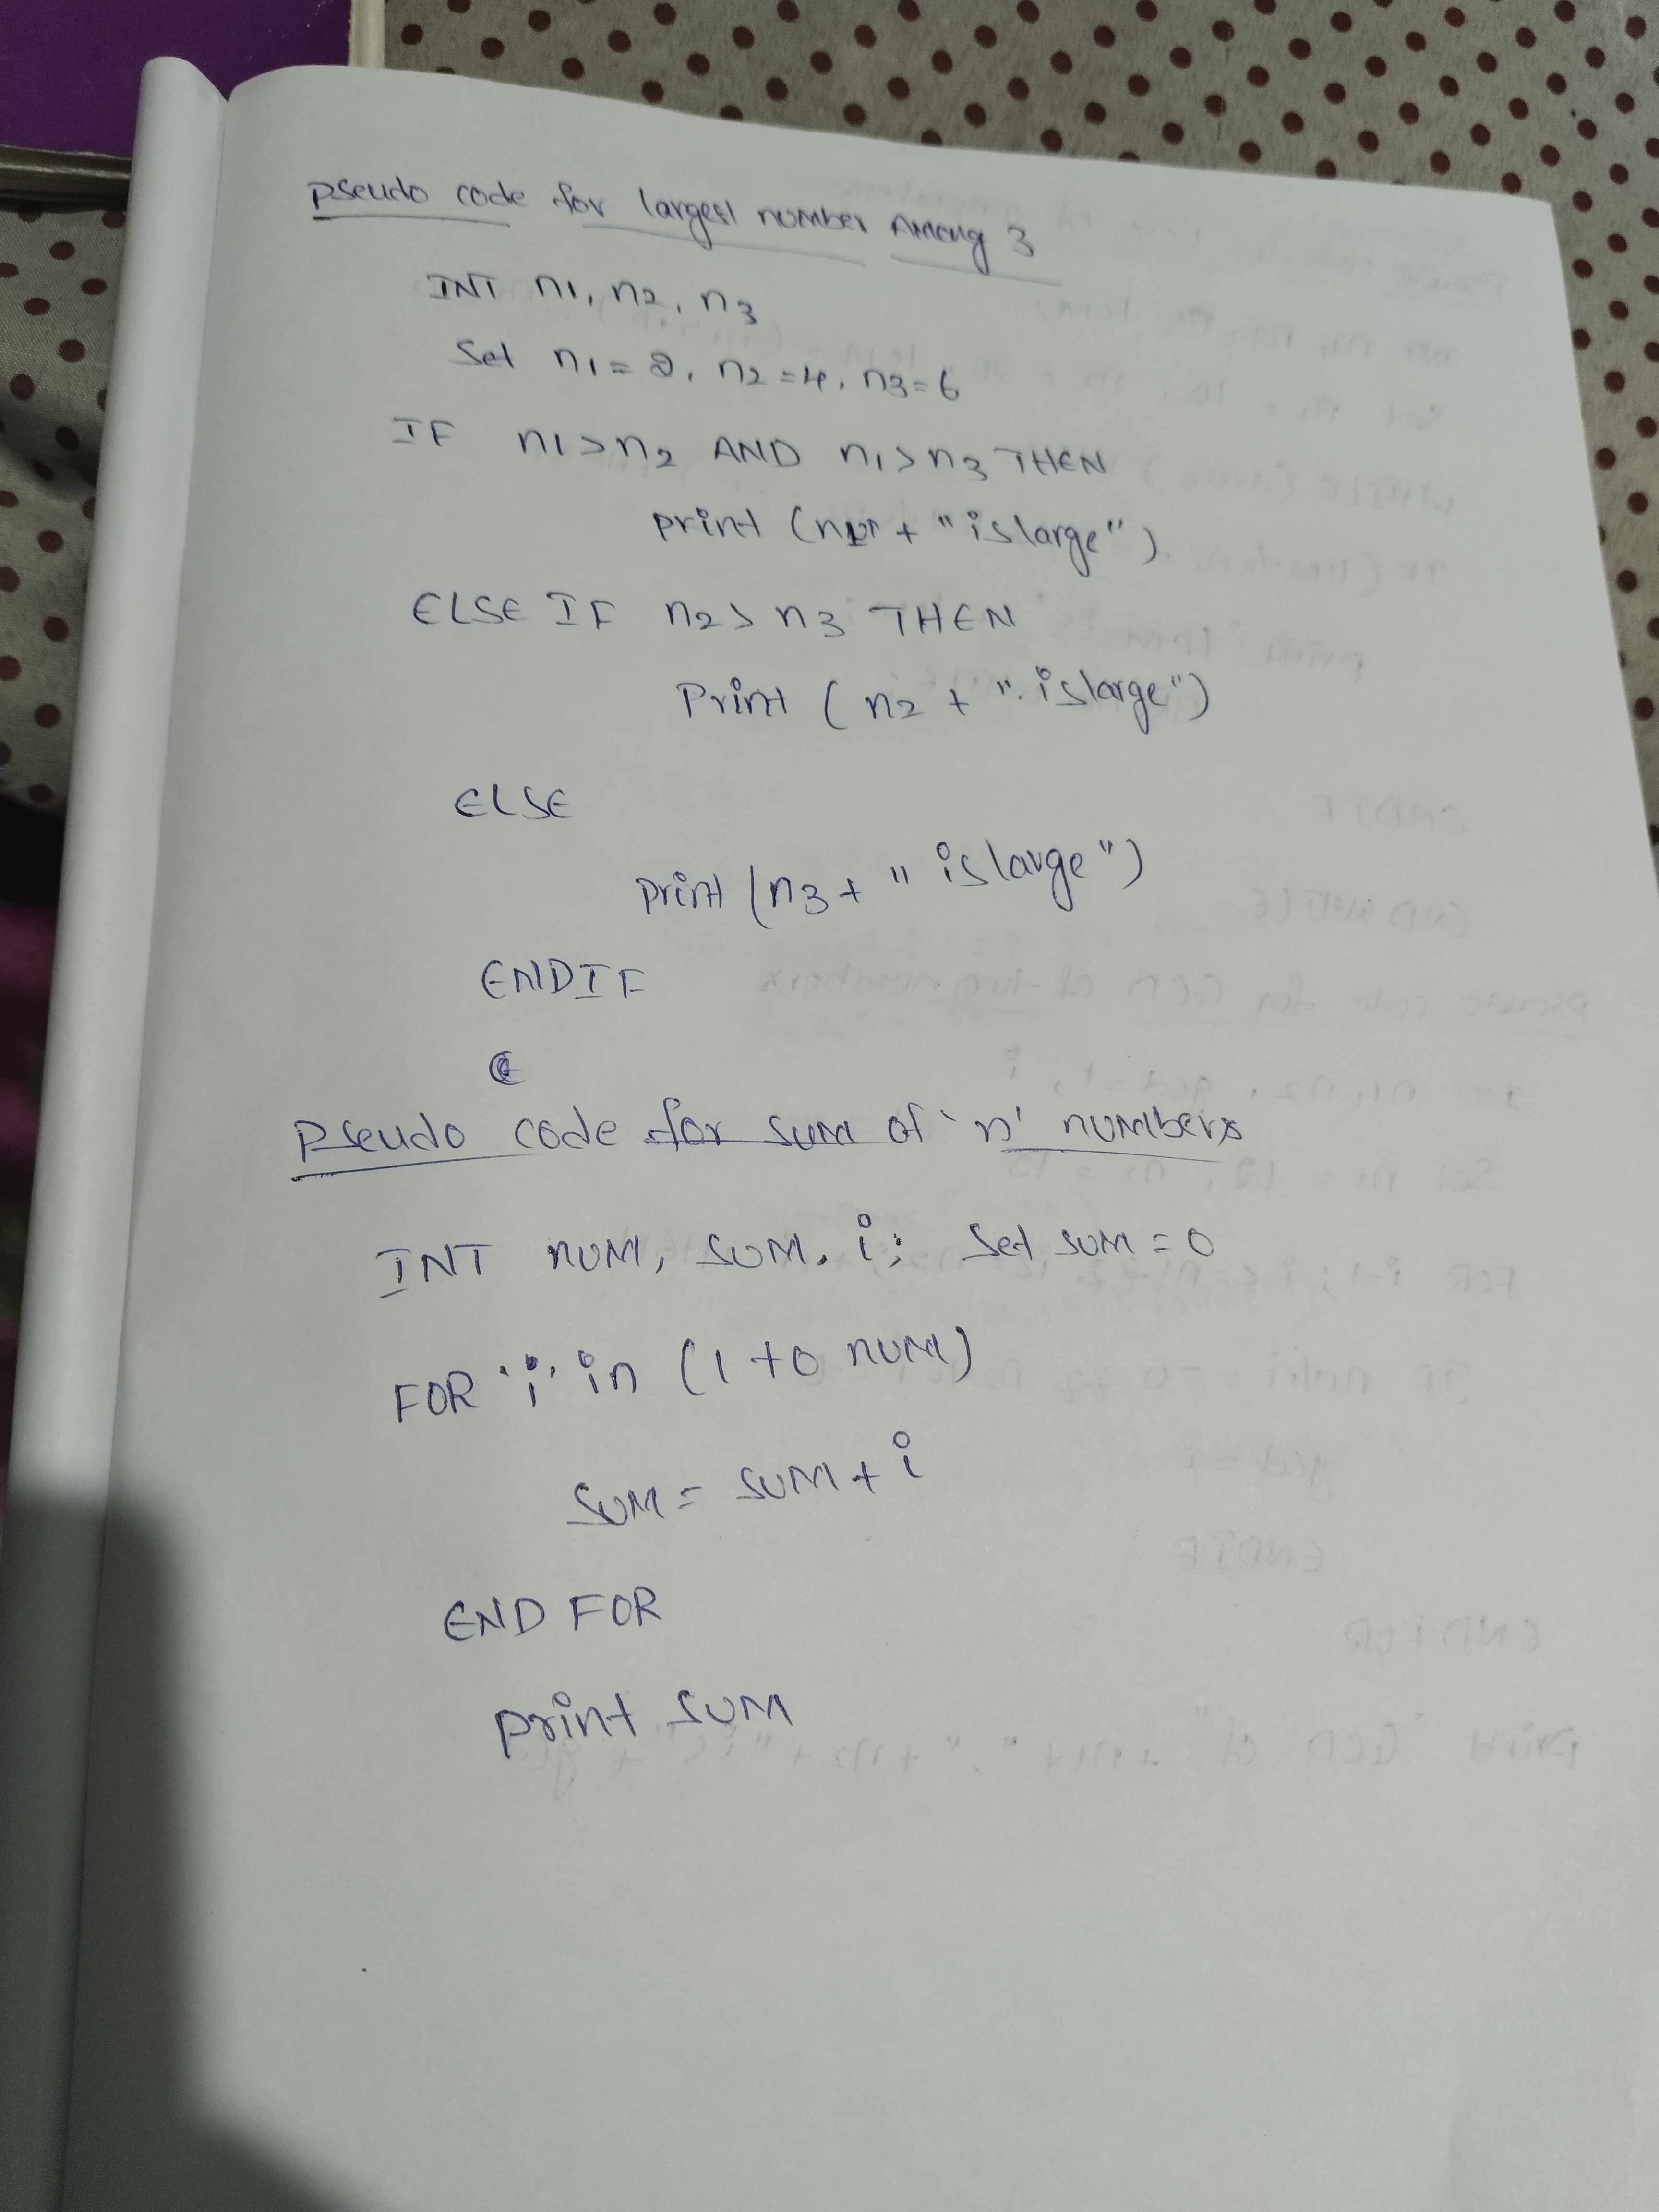 Pseudo code for largest number Among 3
INT n1, n2, n3
Set n1 = 2, n2 = 4, n3 = 6
IF n1 > n2 AND n1 > n3 THEN
print (n1 + "is large")
ELSE IF n2 > n3 THEN
Print (n2 + "is large")
ELSE
print (n3 + "is large")
ENDIF
Pseudo code for sum of 'n' numbers
INT NUM, SUM, i; Set SUM = 0
FOR 'i' in (1 to NUM)
SUM = SUM + i
END FOR
print SUM